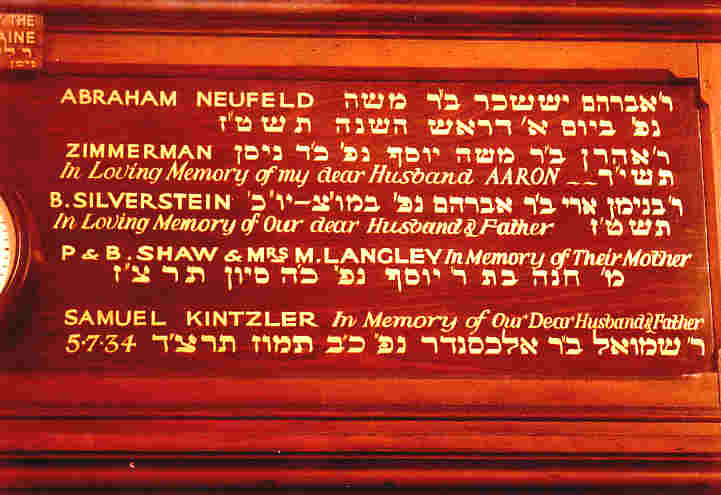 THE
AINE
ABRAHAM NEUFELD ר' אברהם יששכר ב"ר משה
נפ' ביום א' דראש השנה תשט"ז
ZIMMERMAN ר' אהרן ב"ר משה יוסף נפ' כ"ד ניסן
In Loving Memory of my dear Husband AARON ~~ תשי"ד
B. SILVERSTEIN ר' בנימן ארי ב"ר אברהם נפ' במוצ-יו"כ
In Loving Memory of Our dear Husband & Father תשט"ז
P & B. SHAW & MRS M. LANGLEY In Memory of Their Mother
מ' חנה בת ר' יוסף נפ' כ"ה סיון תרצ"ז
SAMUEL KINTZLER In Memory of Our Dear Husband & Father
5·7·34 ר' שמואל ב"ר אלכסנדר נפ' כ"ב תמוז תרצ"ד